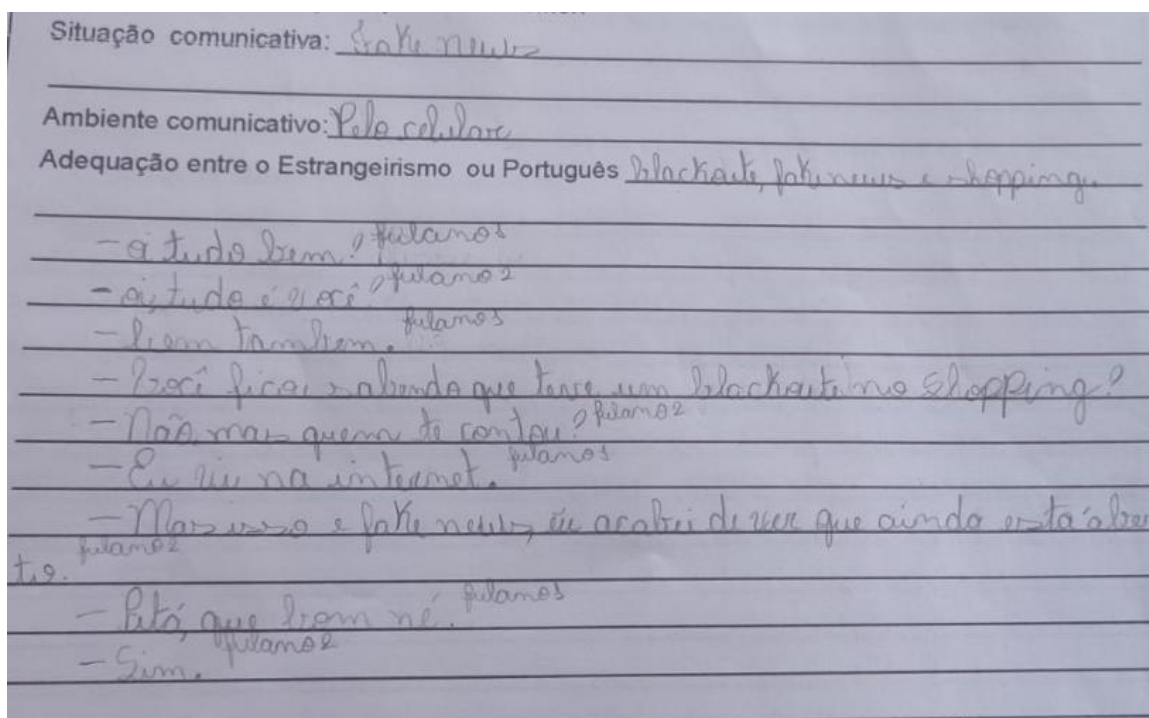 Situação comunicativa: fake news
Ambiente comunicativo: Pelo celulare
Adequação entre o Estrangeirismo ou Português blackaute, fake news e shopping.
- oi tudo bem? fulano1
- oi, tudo é você? fulano2
- bem tambem. fulano1
- Você ficou sabendo que teve um blackaute no shopping?
- Não mas quem te contou? fulano2
- Eu viu na internet. fulano1
- Mas isso e fake news, eu acabei de ver que ainda está aber
to. fulano2
- que bom né. fulano1
- Sim. fulano2